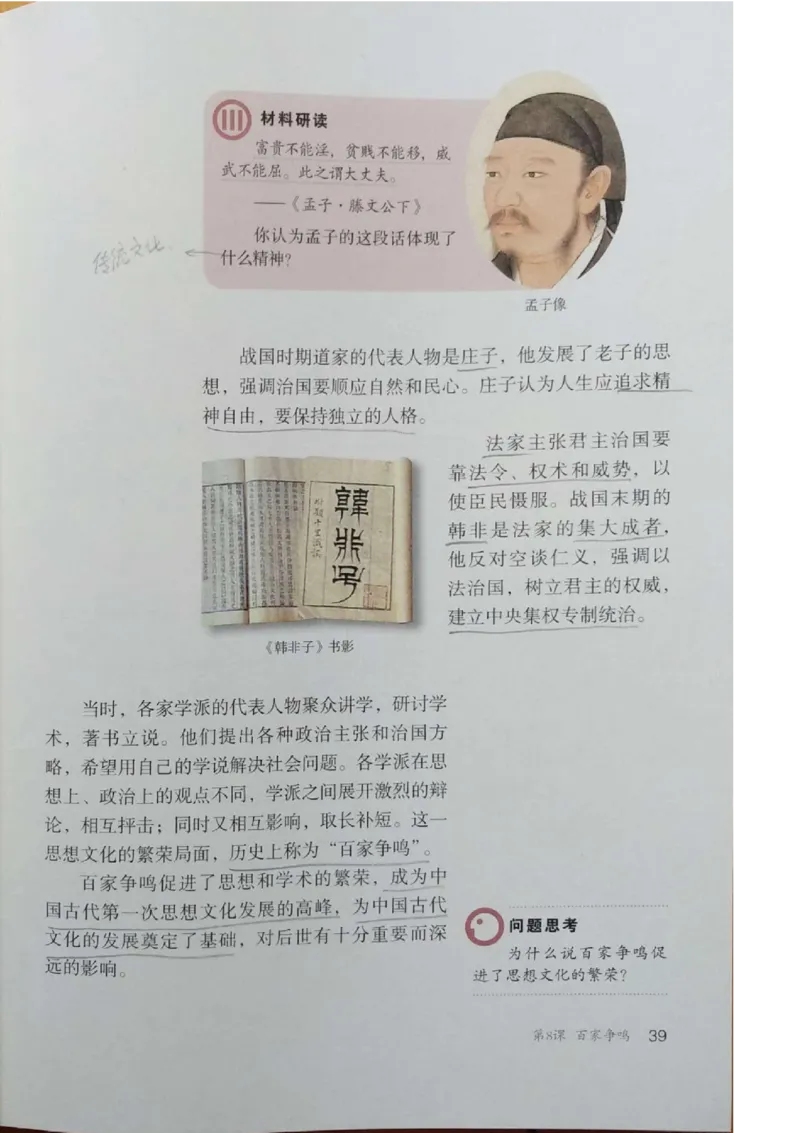 材料研读
富贵不能淫，贫贱不能移，威
武不能屈。此之谓大丈夫。
——《孟子·滕文公下》
你认为孟子的这段话体现了
什么精神？
传统文化
孟子像
战国时期道家的代表人物是庄子，他发展了老子的思
想，强调治国要顺应自然和民心。庄子认为人生应追求精
神自由，要保持独立的人格。
法家主张君主治国要
靠法令、权术和威势，以
使臣民慑服。战国末期的
韩非是法家的集大成者，
他反对空谈仁义，强调以
法治国，树立君主的权威，
建立中央集权专制统治。
韓非子
《韩非子》书影
当时，各家学派的代表人物聚众讲学，研讨学
术，著书立说。他们提出各种政治主张和治国方
略，希望用自己的学说解决社会问题。各学派在思
想上、政治上的观点不同，学派之间展开激烈的辩
论，相互抨击；同时又相互影响，取长补短。这一
思想文化的繁荣局面，历史上称为“百家争鸣”。
百家争鸣促进了思想和学术的繁荣，成为中
国古代第一次思想文化发展的高峰，为中国古代
文化的发展奠定了基础，对后世有十分重要而深
远的影响。
问题思考
为什么说百家争鸣促
进了思想文化的繁荣？
第8课 百家争鸣 39